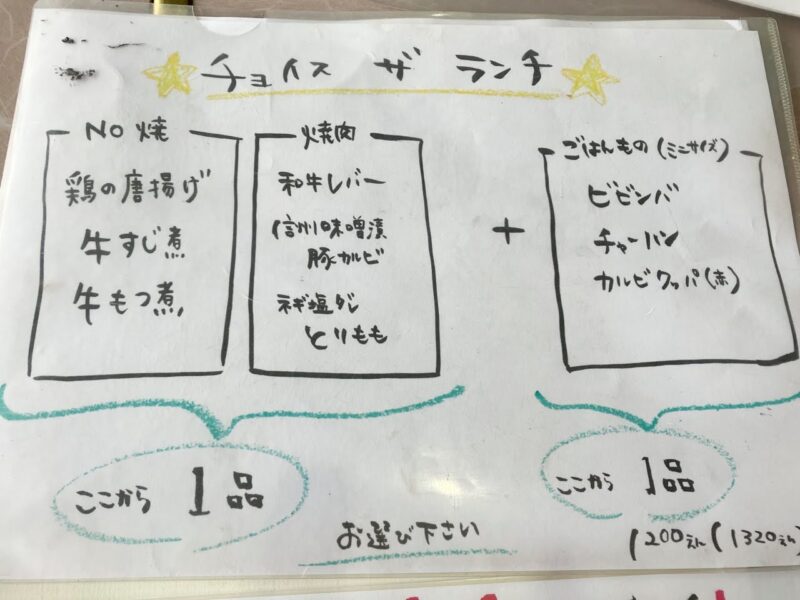 チョイス ザ ランチ
NO 焼
鶏の唐揚げ
牛すじ煮
牛もつ煮
焼肉
和牛レバー
信州味噌漬
豚カルビ
ネギ塩ダレ
とりもも
+
ごはんもの(ミニサイズ)
ビビンバ
チャーハン
カルビクッパ(赤)
ここから 1品
ここから 1品
お選び下さい
1200えん(1320えん)